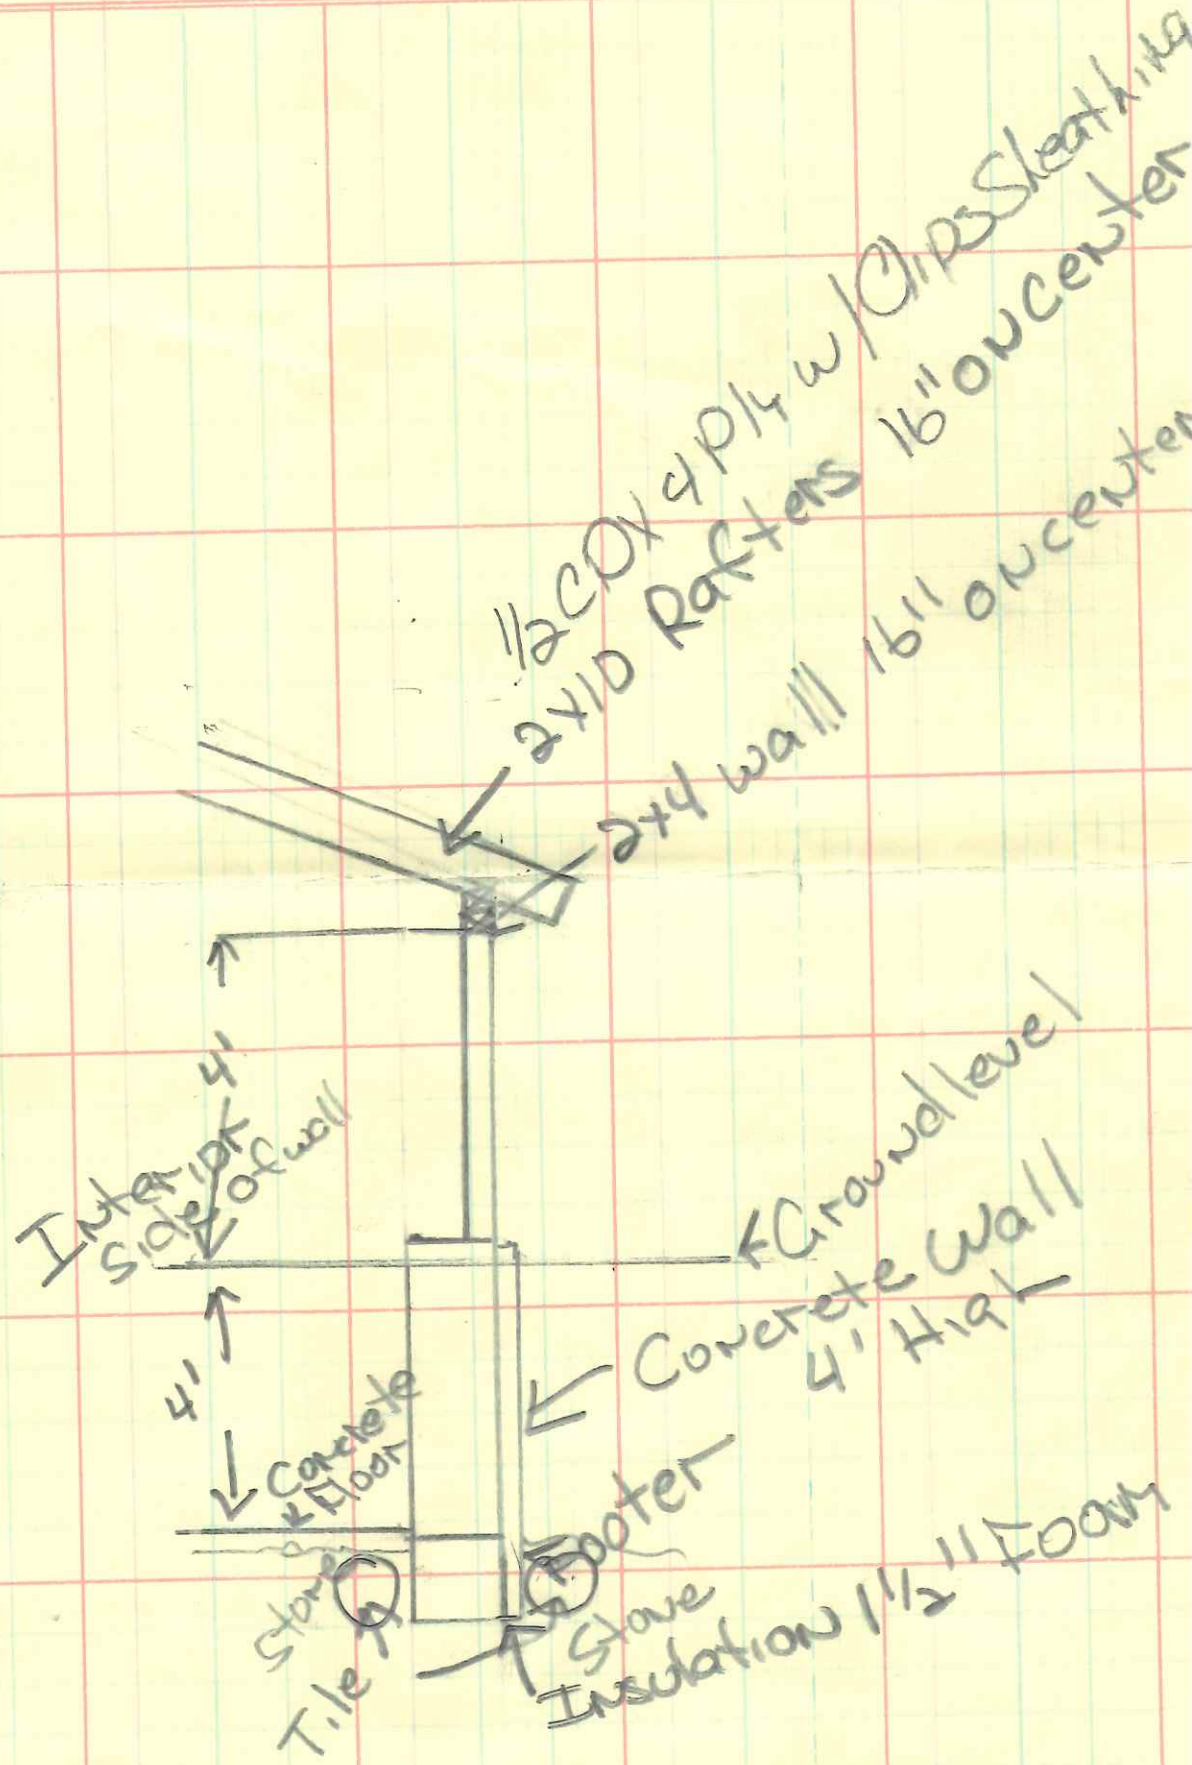 1/2 CDX 4 Ply w/Clips Sheathing
2x10 Rafters 16" ON Center
2x4 wall 16" ON center
4'
Interior
Side of wall
←Ground level
Concrete Wall
4' High
4'
Concrete
Floor
Footer
Stone
Stone
Tile
Insulation 1 1/2" Foam